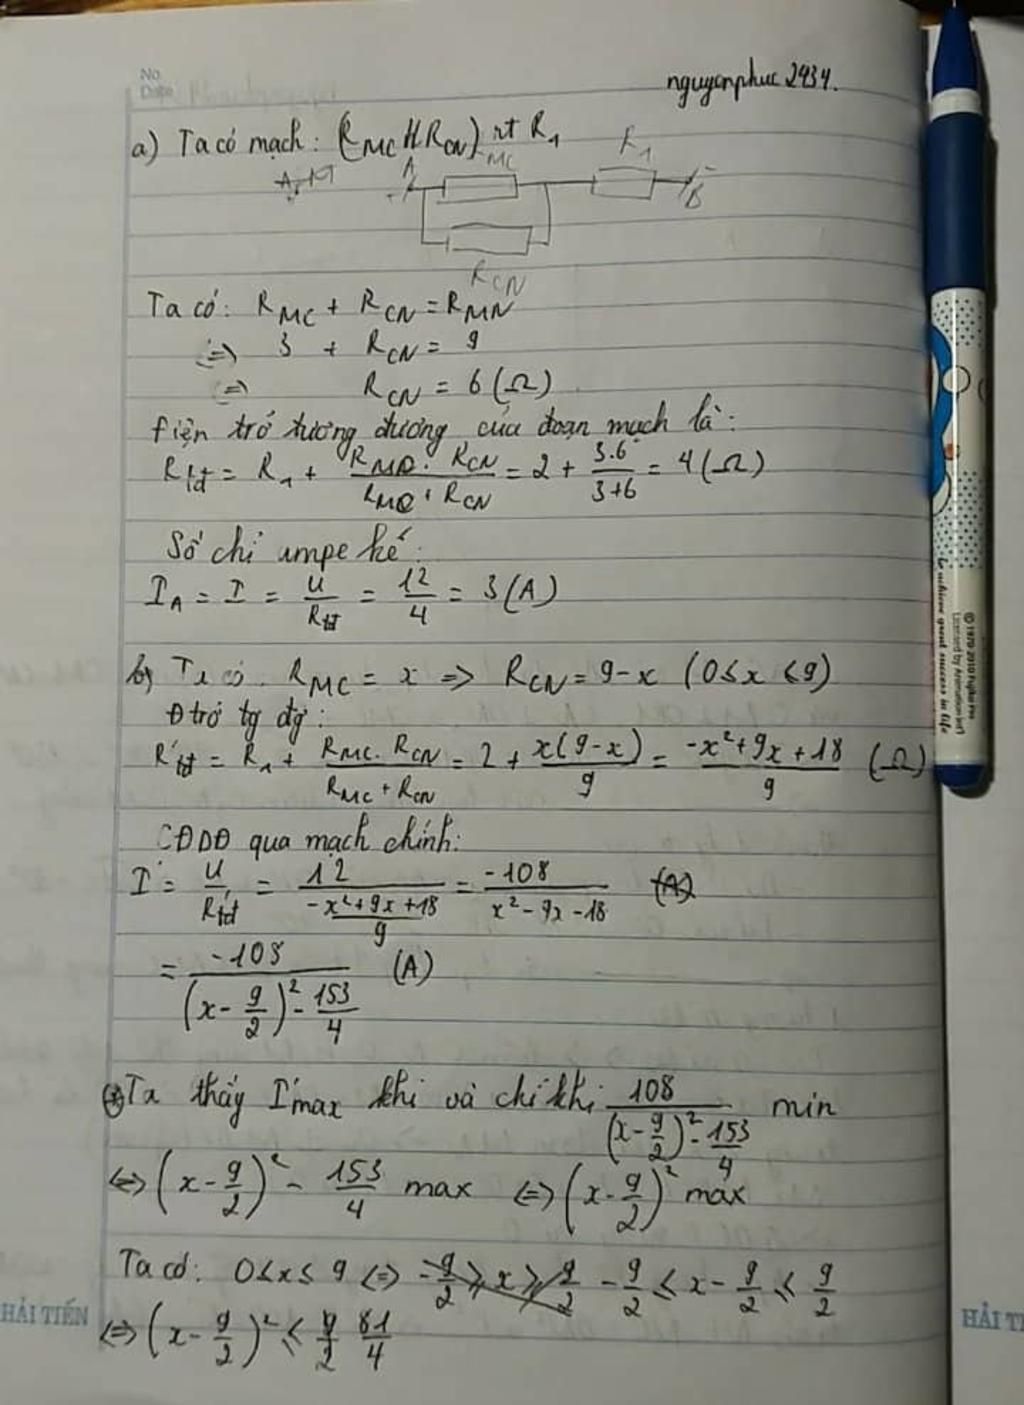 No.
Date
nguyenphuc2434.
a) Ta có mạch: (R_MC // R_CN) nt R_1
A R_MC R_1 B
R_CN
Ta có: R_MC + R_CN = R_MN
⇔ 3 + R_CN = 9
⇔ R_CN = 6 (Ω)
Điện trở tương đương của đoạn mạch là:
R_tđ = R_1 + (R_MC . R_CN)/(R_MC + R_CN) = 2 + (3.6)/(3+6) = 4 (Ω)
Số chỉ ampe kế:
I_A = I = U/R_tđ = 12/4 = 3 (A)
b) Ta có. R_MC = x ⇒ R_CN = 9-x (0≤x≤9)
Đtrở tg đg:
R'_tđ = R_1 + (R_MC . R_CN)/(R_MC + R_CN) = 2 + x(9-x)/9 = (-x²+9x+18)/9 (Ω)
CĐDĐ qua mạch chính:
I' = U/R'_tđ = 12/((-x²+9x+18)/9) = -108/(x²-9x-18)
= -108/((x-9/2)² - 153/4) (A)
Ta thấy I'max khi và chỉ khi 108/((x-9/2)² - 153/4) min
⇔ (x-9/2)² - 153/4 max ⇔ (x-9/2)² max
Ta có: 0≤x≤9 ⇔ -9/2 ≤ x-9/2 ≤ 9/2
⇔ (x-9/2)² ≤ 81/4
HẢI TIẾN
HẢI TI
to achieve great success in life
© 1970-2010 Fujiko Pro
Licensed by Animation Int'l